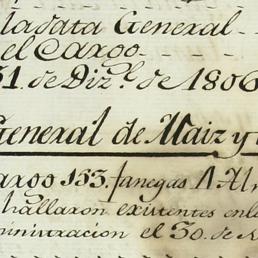 la data General
el Cargo
31. de Diz.e de 1806
General de Maiz y
Cargo 153. fanegas
hallaron existentes en
ministracion el 30. de